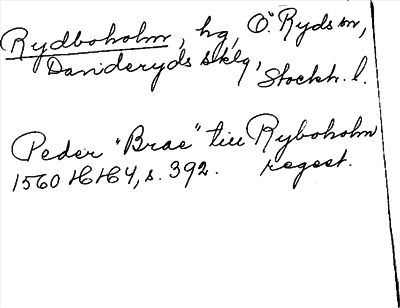 Rydboholm, hg, Ö. Ryds sn,
Danderyds sklg, Stockh. l.
Peder "Brae" till Ryboholm
1560 HH 4, s. 392. regest.